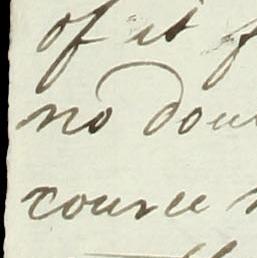 of it f
no dou
cource